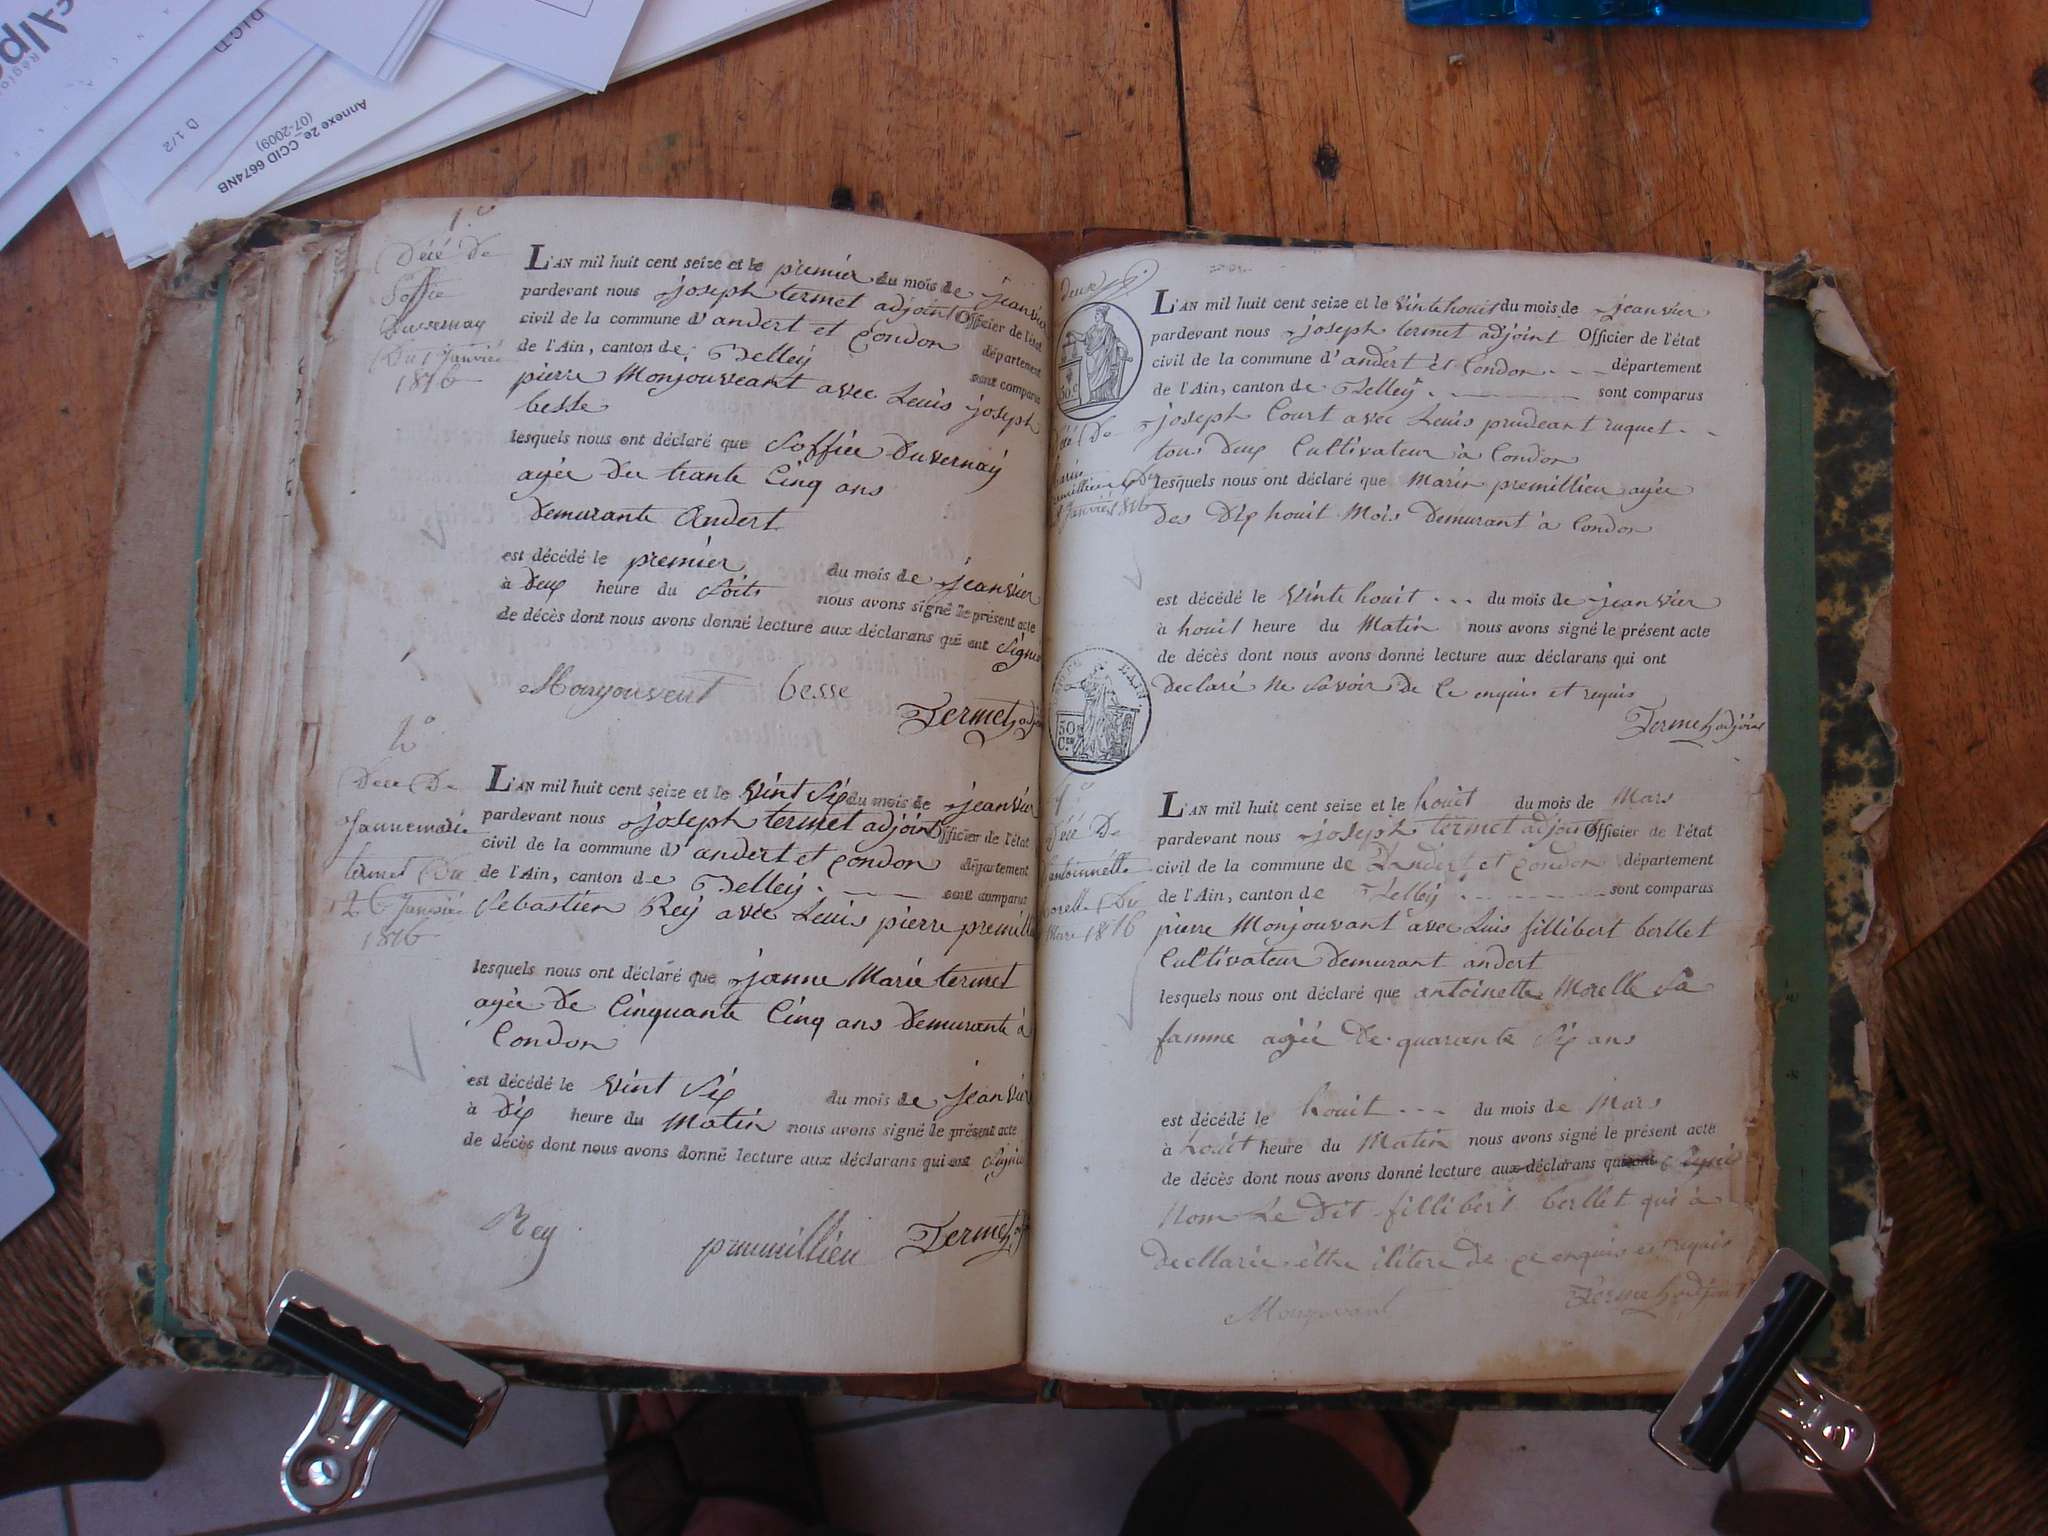 Alpe
Région
D 1/2
Annexe 2e_CCID 6674NB
(07-2009)
1.°
Décé De
Soffie
Duvernay
Du 1 Janvié
1816
L'AN mil huit cent seize et le premier du mois de jeanvier
pardevant nous joseph termet adjoint Officier de l'état
civil de la commune d'andert et Condon département
de l'Ain, canton de Belley sont comparus
pierre Monjouveant avec Leuis joseph
besse
lesquels nous ont déclaré que Soffiee Duvernay
agée De trante Cinq ans
Demurante Andert
est décédé le premier du mois de jeanvier
à Deux heure du Soits nous avons signé le présent acte
de décès dont nous avons donné lecture aux déclarans qui ont Signé
Monjouvent besse
Termet, adj
2°
Décé De
Jannemarie
termet Du
26 Janvié
1816
L'AN mil huit cent seize et le vint Six du mois de jeanvier
pardevant nous joseph termet adjoint Officier de l'état
civil de la commune d'andert et Condon département
de l'Ain, canton de Belley. sont comparus
Sebastien Rey avec Leuis pierre premilli
lesquels nous ont déclaré que janne Marie termet
agée De Cinquante Cinq ans Demurante à
Condon
est décédé le vint Six du mois de jeanvier
à Dix heure du Matin nous avons signé le présent acte
de décès dont nous avons donné lecture aux déclarans qui ont Signé
Rey premillieu Termet,
deux
50 c.
L'AN mil huit cent seize et le vinte houit du mois de jeanvier
pardevant nous joseph termet adjoint Officier de l'état
civil de la commune d'andert et Condon département
de l'Ain, canton de Belley. sont comparus
joseph Court avec Leuis prudeant ruquet
tous Deux Cultivateur à Condon
Décé De
Marie
premillieu Du
Janvié 1816
lesquels nous ont déclaré que Marie premillieu agée
des Dix houit Mois Demurant à Condon
est décédé le vinte houit du mois de jeanvier
à houit heure du Matin nous avons signé le présent acte
de décès dont nous avons donné lecture aux déclarans qui ont
declaré ne Savoir De Ce enquis et requis
Termet, adjoint
50 Cen
4°
Décé De
antoinette
Morelle Du
Mars 1816
L'AN mil huit cent seize et le houit du mois de Mars
pardevant nous joseph termet adjoint Officier de l'état
civil de la commune de Landert et Condon département
de l'Ain, canton de Belley sont comparus
pierre Monjouvant avec Luis fillibert berllet
Cultivateur Demurant andert
lesquels nous ont déclaré que antoinette Morelle Sa
famme agée De quarante Six ans
est décédé le houit du mois de Mars
à houit heure du Matin nous avons signé le présent acte
de décès dont nous avons donné lecture aux déclarans qui ont Signé
Nom Le Dit fillibert berllet qui à
decllarée éthe ilitere de ce enquis et requis
Termet, adjoint
Monjovant